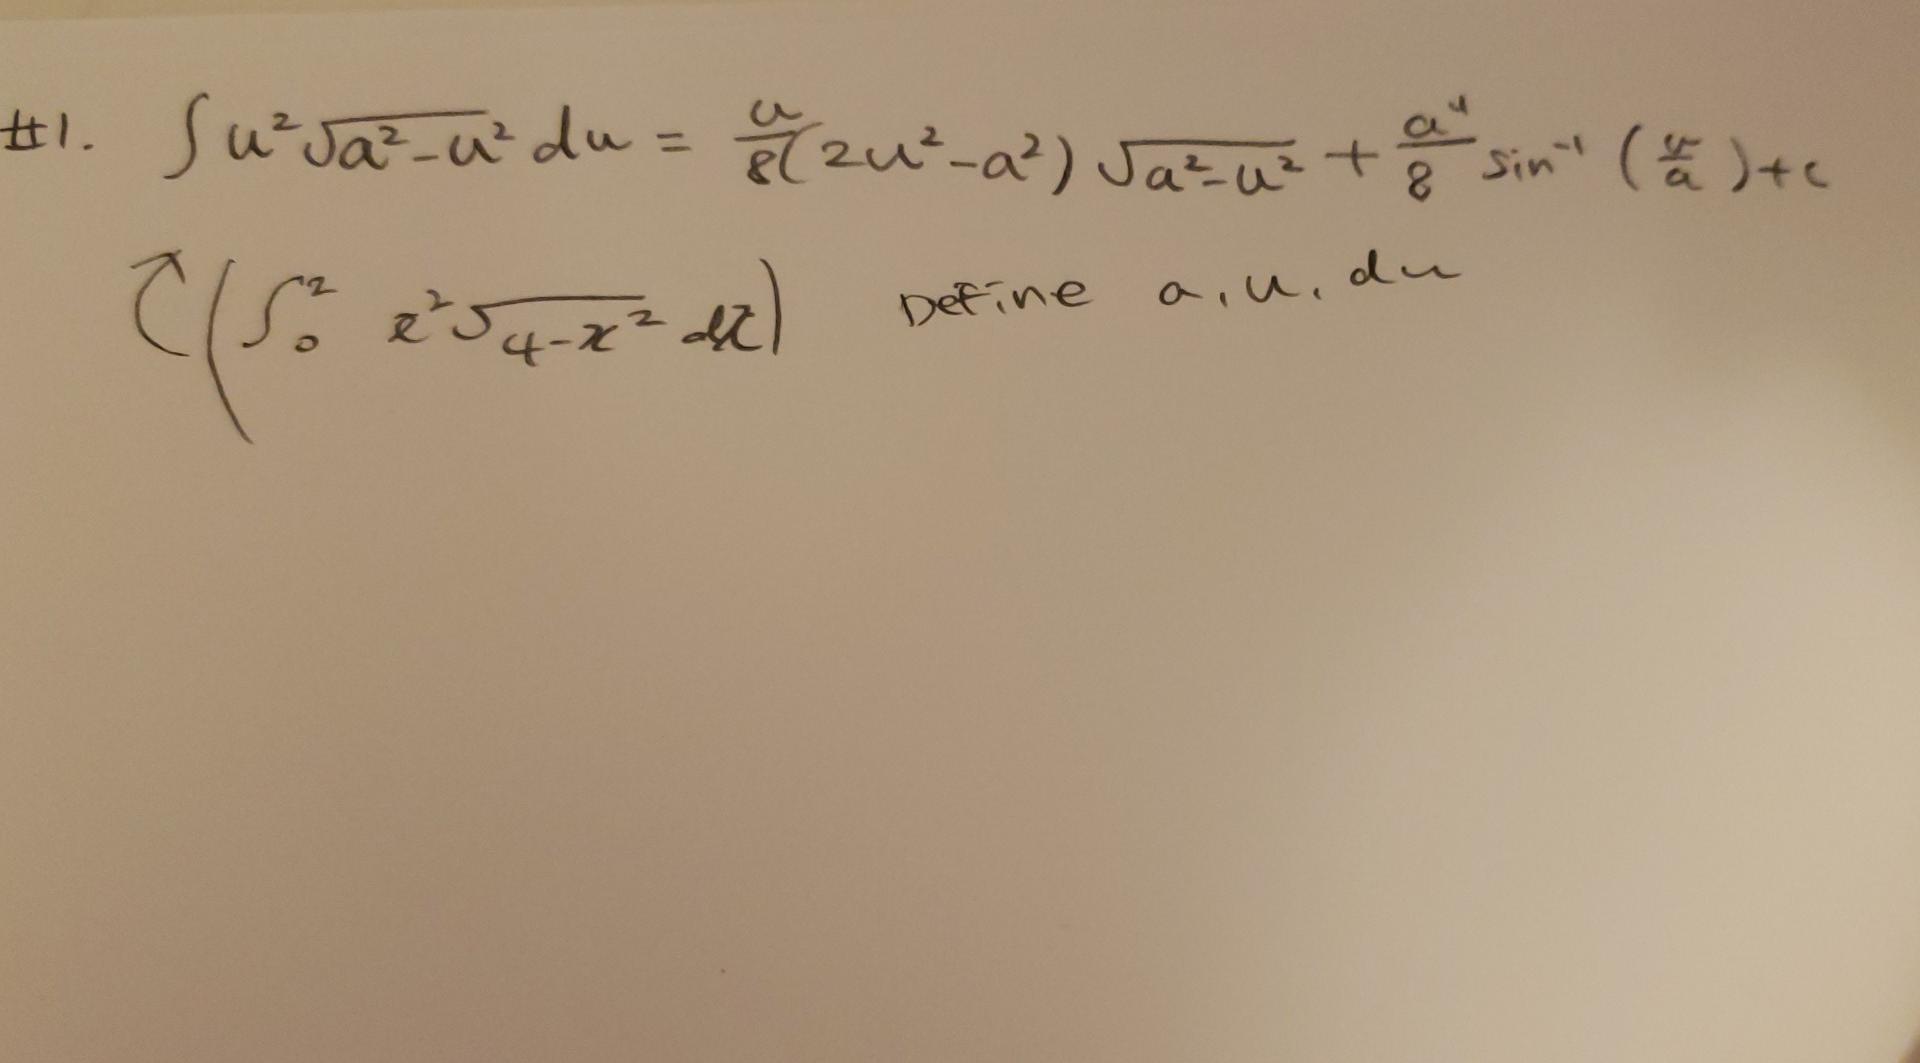 #1. ∫u²√a²-u² du = u/8(2u²-a²) √a²-u² + a⁴/8 sin⁻¹ (u/a)+c
(∫₀² x²√4-x² dx) Define a, u, du